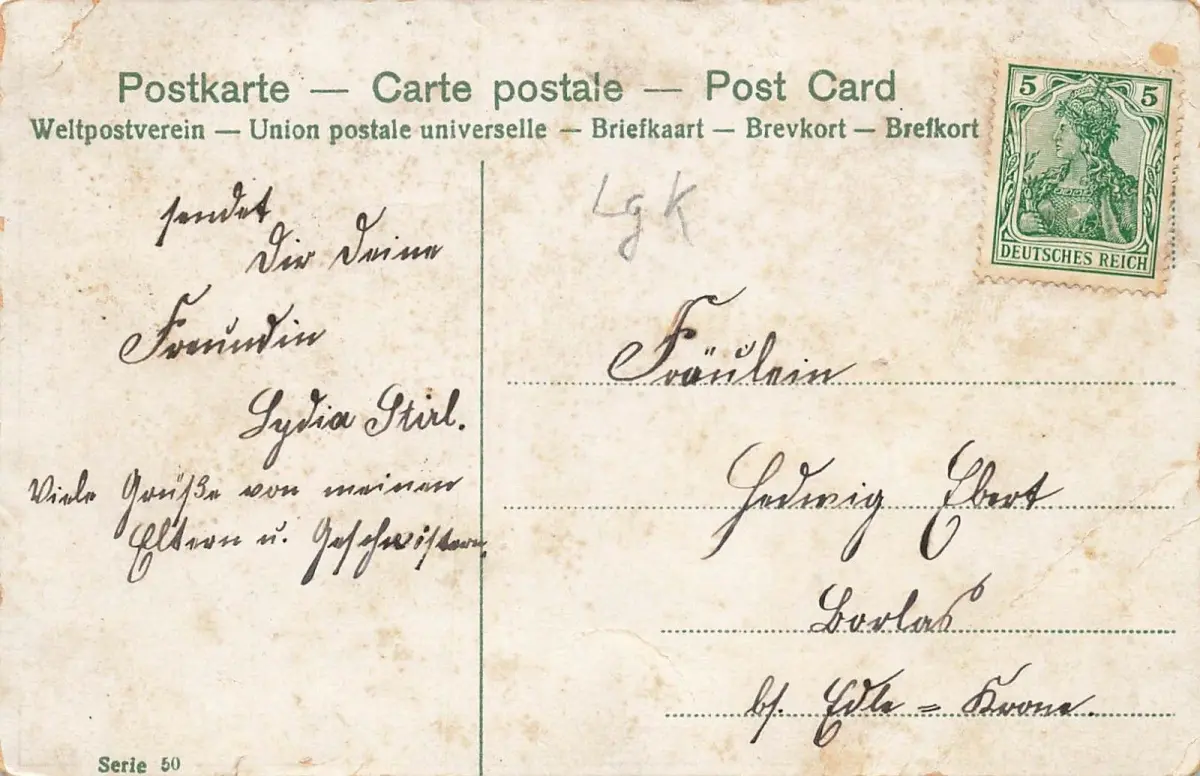 Postkarte — Carte postale — Post Card
Weltpostverein — Union postale universelle — Briefkaart — Brevkort — Brefkort
5 5
DEUTSCHES REICH
LgK
sendet
Dir Deine
Freundin
Lydia Stirl.
Viele Grüße von meinen
Eltern u. Geschwistern.
Fräulein
Hedwig Ebert
Borlas
bs. Edle = Krone.
Serie 50